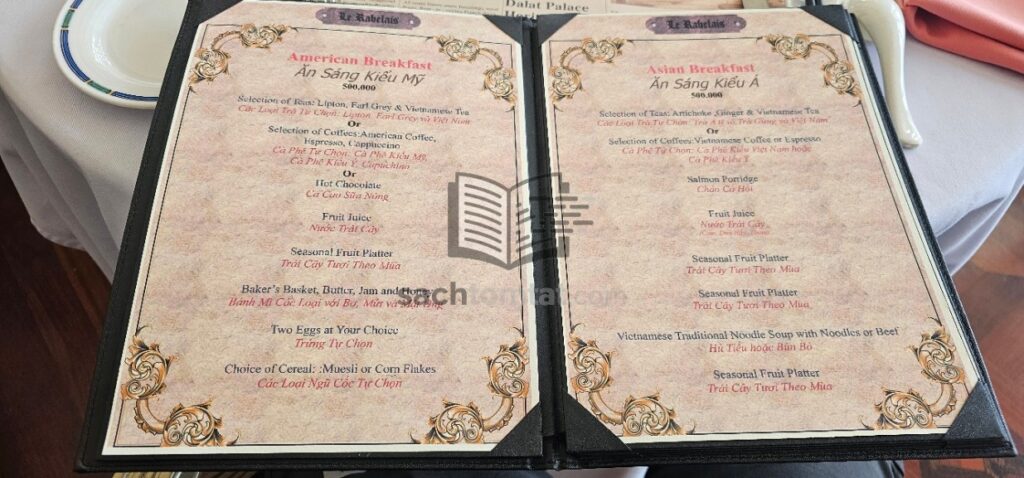 Dalat Palace
Le Rabelais
American Breakfast
Ăn Sáng Kiểu Mỹ
500.000
Selection of Teas: Lipton, Earl Grey & Vietnamese Tea
Các Loại Trà Tự Chọn: Lipton, Earl Grey và Việt Nam
Or
Selection of Coffees:American Coffee,
Espresso, Cappuccino
Cà Phê Tự Chọn: Cà Phê Kiểu Mỹ,
Cà Phê Kiểu Ý, Capuchino
Or
Hot Chocolate
Ca Cao Sữa Nóng
Fruit Juice
Nước Trái Cây
Seasonal Fruit Platter
Trái Cây Tươi Theo Mùa
Baker's Basket, Butter, Jam and
Bánh Mì Các Loại với Bơ, Mứt và
Two Eggs at Your Choice
Trứng Tự Chọn
Choice of Cereal: :Muesli or Corn Flakes
Các Loại Ngũ Cốc Tự Chọn
Le Rabelais
Asian Breakfast
Ăn Sáng Kiểu Á
500.000
Selection of Teas: Artichoke ,Ginger & Vietnamese Tea
Các Loại Trà Tự Chọn: Trà A ti sô Trà Gừng và Việt Nam
Or
Selection of Coffees:Vietnamese Coffee or Espresso
Cà Phê Tự Chọn: Cà Phê Kiểu Việt Nam hoặc
Cà Phê Kiểu Ý
Salmon Porridge
Cháo Cá Hồi
Fruit Juice
Nước Trái Cây
Seasonal Fruit Platter
Trái Cây Tươi Theo Mùa
Seasonal Fruit Platter
Trái Cây Tươi Theo Mùa
Vietnamese Traditional Noodle Soup with Noodles or Beef
Hủ Tiếu hoặc Bún Bò
Seasonal Fruit Platter
Trái Cây Tươi Theo Mùa
sachtomtat.com